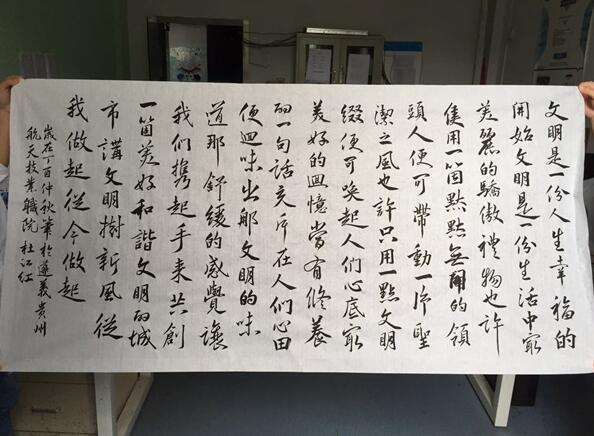 文明是一份人生幸福的
開始文明是一份生活中最
美麗的驕傲禮物也許
僅用一箇點點無聞的領
頭人便可帶動一片聖
潔之風也許只用一點文明
綴便可喚起人們心底最
美好的回憶當有修養
的一句話充斥在人們心田
便迴味出那文明的味
道那舒緩的感覺讓
我们携起手来共創
一箇美好和諧文明的城
市講文明樹新風從
我做起從今做起
歲在丁酉仲秋書於遵義貴州
航天技業職院杜江紅